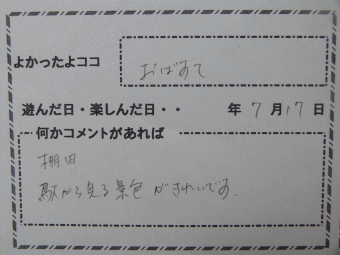 よかったよココ
おばすて
遊んだ日・楽しんだ日・・ 年 7 月 17 日
何かコメントがあれば
棚田
駅から見る景色がきれいです。